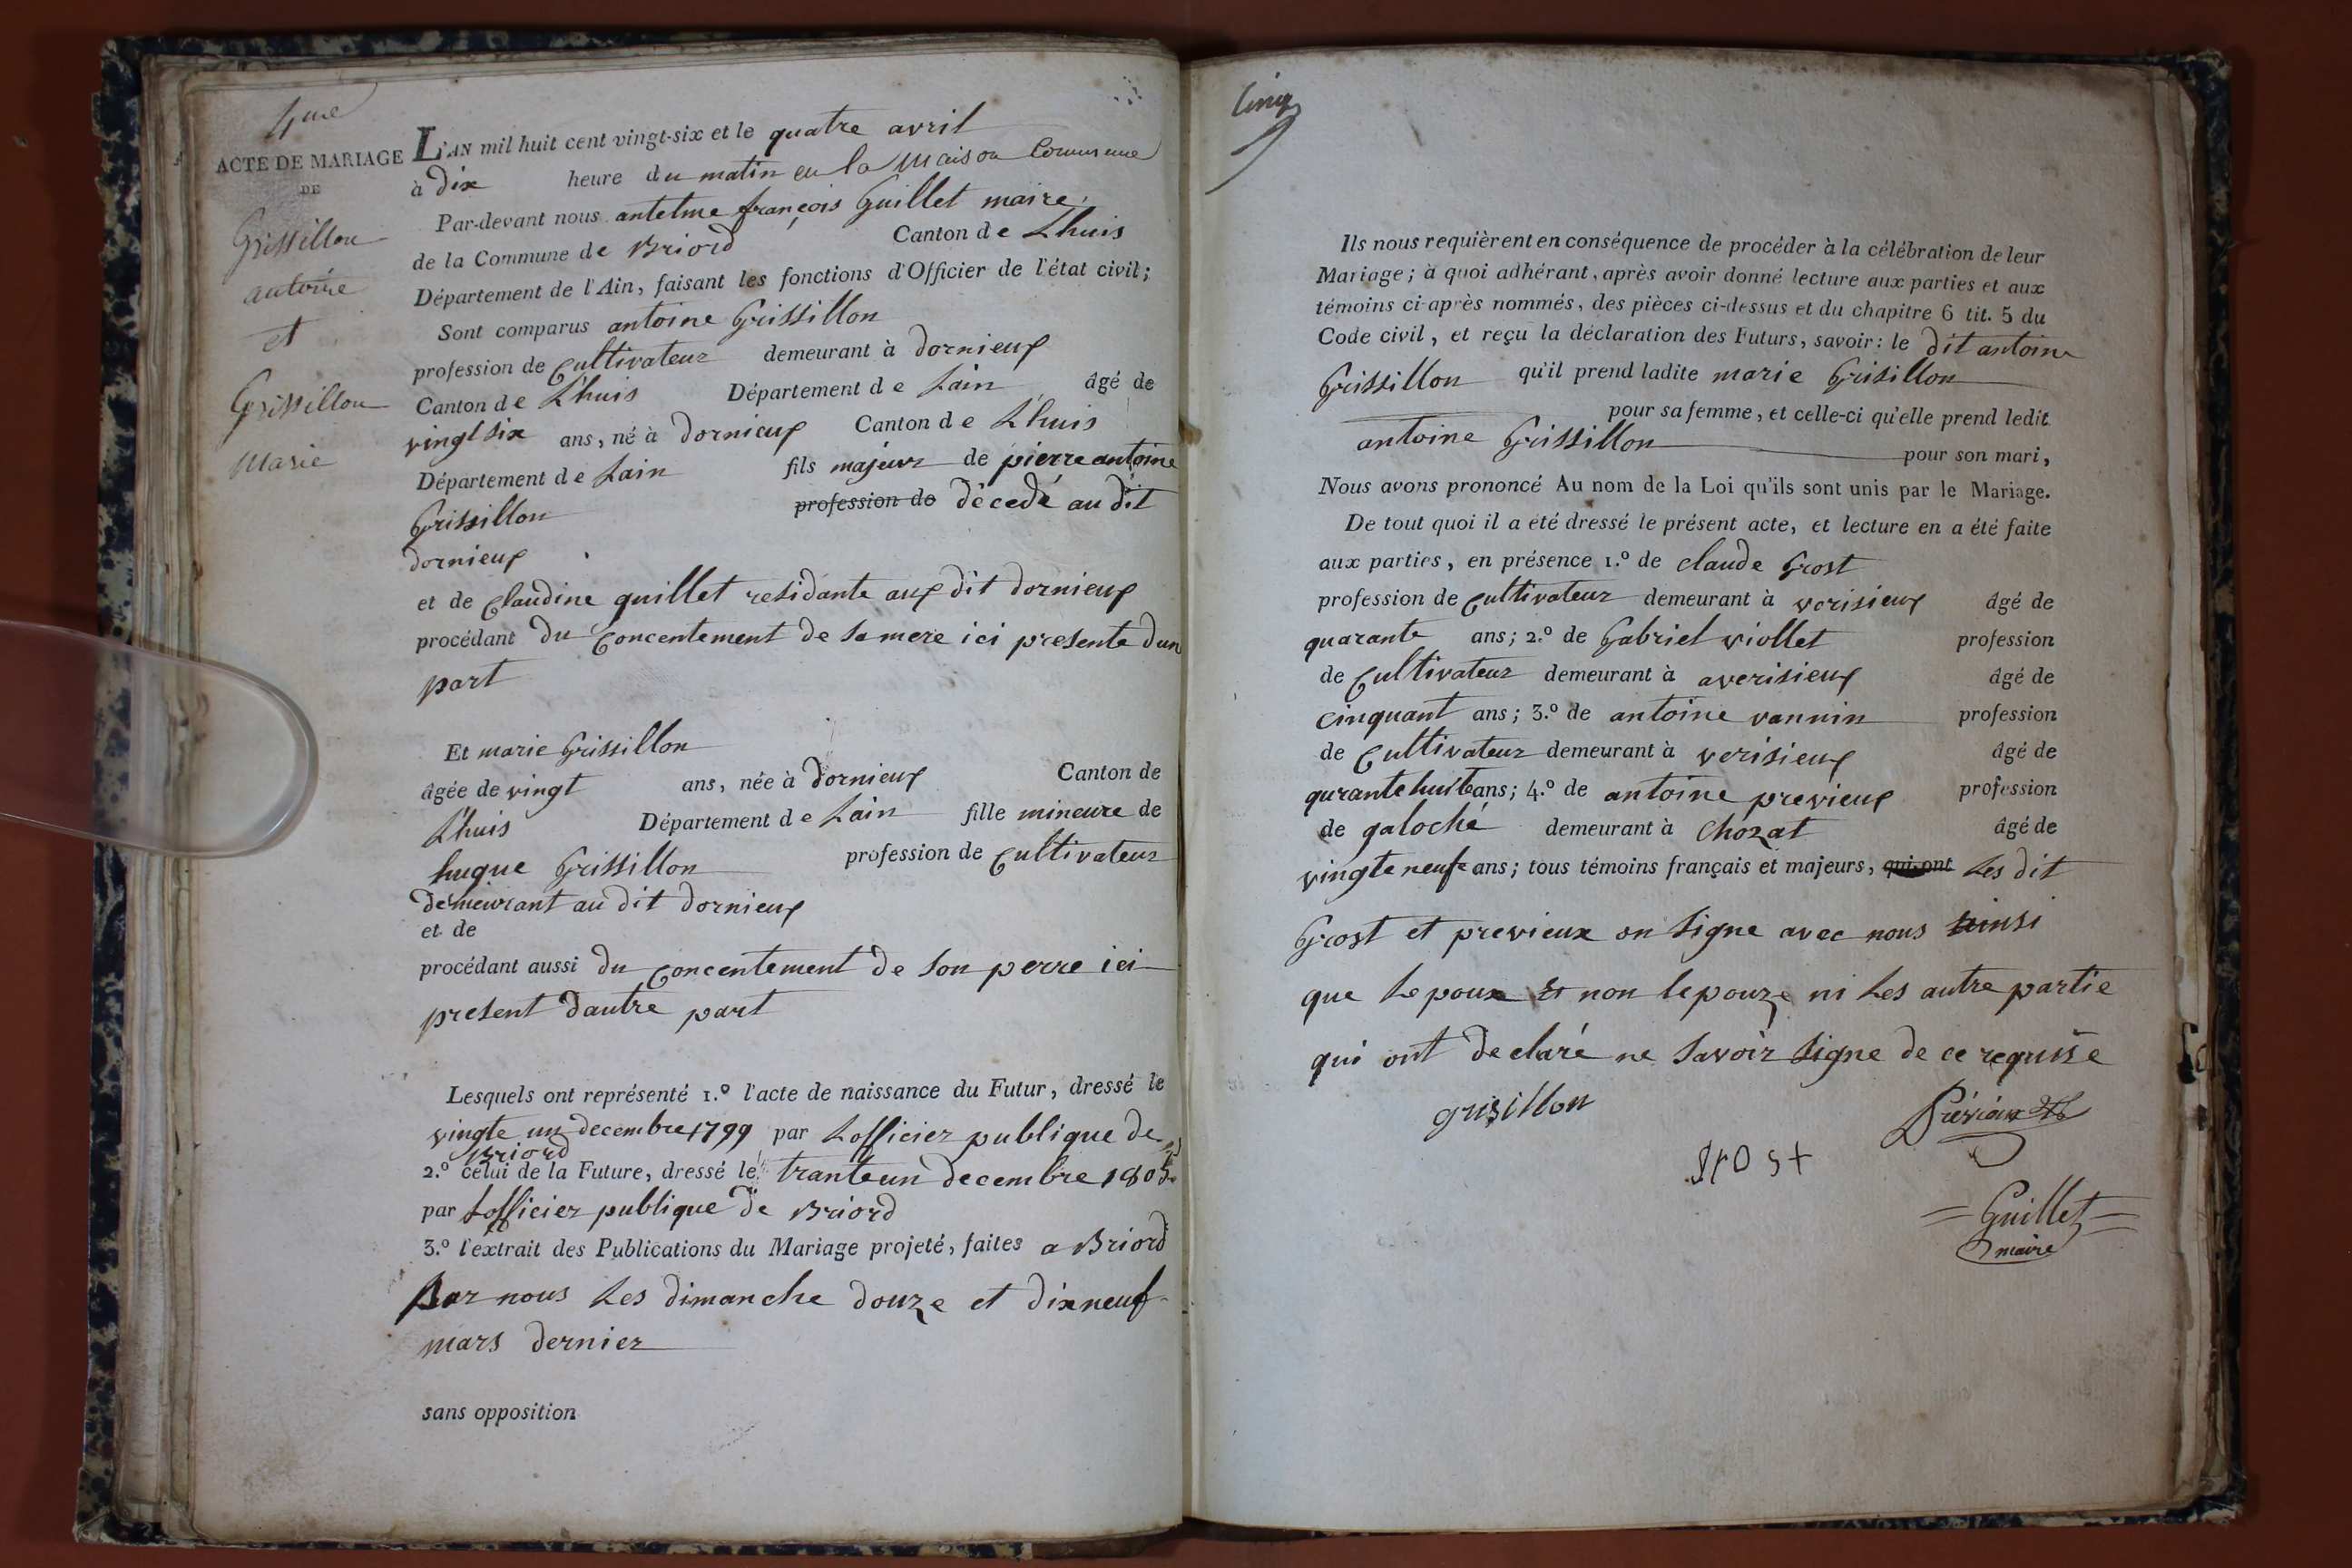 4me
ACTE DE MARIAGE
DE
Grissillon
antoine
et
Grissillon
Marie
L'AN mil huit cent vingt-six et le quatre avril
à dix heure du matin en la maison Commune
Par-devant nous antelme françois Guillet maire
de la Commune de Briord Canton de Lhuis
Département de l'Ain, faisant les fonctions d'Officier de l'état civil;
Sont comparus antoine Grissillon
profession de Cultivateur demeurant à dornieux
Canton de Lhuis Département de Lain âgé de
vingt six ans, né à dornieux Canton de Lhuis
Département de Lain fils majeur de pierre antoine
Grissillon profession de décedé au dit
dornieux
et de Claudine guillet residante aux dit dornieux
procédant du Concentement de sa mere ici presente dun
part
Et marie Grissillon
âgée de vingt ans, née à dornieux Canton de
Lhuis Département de Lain fille mineure de
hugue Grissillon profession de Cultivateur
demeurant au dit dornieux
et de
procédant aussi du Concentement de son perre ici
present dautre part
Lesquels ont représenté 1.º l'acte de naissance du Futur, dressé le
vingte un decembre 1799 par Lofficier publique de
Briord
2.º celui de la Future, dressé le tranteun decembre 1805
par Lofficier publique de Briord
3.º l'extrait des Publications du Mariage projeté, faites a Briord
Par nous Les dimanche douze et dixneuf
mars dernier
sans opposition
Cinq
Ils nous requièrent en conséquence de procéder à la célébration de leur
Mariage; à quoi adhérant, après avoir donné lecture aux parties et aux
témoins ci-après nommés, des pièces ci-dessus et du chapitre 6 tit. 5 du
Code civil, et reçu la déclaration des Futurs, savoir: le dit antoine
Grissillon qu'il prend ladite marie Grisillon
pour sa femme, et celle-ci qu'elle prend ledit
antoine Grissillon pour son mari,
Nous avons prononcé Au nom de la Loi qu'ils sont unis par le Mariage.
De tout quoi il a été dressé le présent acte, et lecture en a été faite
aux parties, en présence 1.º de claude Grost
profession de Cultivateur demeurant à verisieux âgé de
quarante ans; 2.º de Gabriel viollet profession
de Cultivateur demeurant à averisieux âgé de
cinquant ans; 3.º de antoine vannin profession
de Cultivateur demeurant à verisieux âgé de
qurante huit ans; 4.º de antoine previeux profession
de galoché demeurant à Chozat âgé de
vingte neuf ans; tous témoins français et majeurs, qui ont Les dit
Grost et previeux on signe avec nous ainsi
que Lepoux et non lepouze ni Les autre partie
qui ont declaré ne savoir signe de ce requise
grisillon
Previeux
grost
Guillet
maire